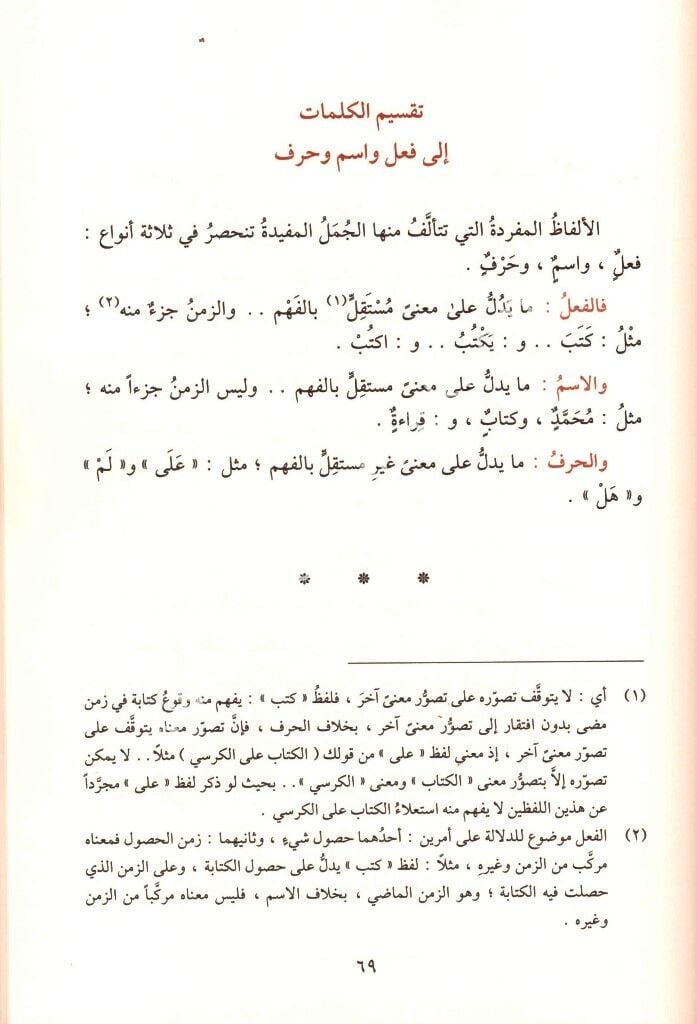 تقسيم الكلمات
إلى فعل واسم وحرف
الألفاظُ المفردةُ التي تتألَّفُ منها الجُمَلُ المفيدةُ تنحصرُ في ثلاثة أنواع :
فعلٌ ، واسمٌ ، وحَرْفٌ .
فالفعلُ : ما يَدُلُّ علىٰ معنىً مُسْتَقِلٍّ(١) بالفَهْم . . والزمنُ جزءٌ منه(٢) ؛
مثْلُ : كَتَبَ . . و : يَكْتُبُ . . و : اكتُبْ .
والاسمُ : ما يدلُّ على معنىً مستقلٍّ بالفهم . . وليس الزمنُ جزءاً منه ؛
مثلُ : مُحَمَّدٌ ، وكتابٌ ، و : قِراءةٌ .
والحرفُ : ما يدلُّ على معنىً غيرِ مستقِلٍّ بالفهم ؛ مثل : « عَلَى » و« لَمْ »
و« هَلْ » .
* * *
(١) أي : لا يتوقَّف تصوّره على تصوُّر معنىً آخرَ ، فلفظُ « كتب » : يفهم منه وقوعُ كتابة في زمن
مضى بدون افتقار إلى تصوُّر معنىً آخر ، بخلاف الحرف ، فإنَّ تصوّر معناه يتوقَّف على
تصوّر معنىً آخر ، إذ معنى لفظ « على » من قولك ( الكتاب على الكرسي ) مثلاً . . لا يمكن
تصوّره إلاَّ بتصوُّر معنى « الكتاب » ومعنى « الكرسي » . . بحيث لو ذكر لفظ « على » مجرَّداً
عن هذين اللفظين لا يفهم منه استعلاءُ الكتاب على الكرسي .
(٢) الفعل موضوع للدلالة على أمرين : أحدُهما حصول شيءٍ ، وثانيهما : زمن الحصول فمعناه
مركَّب من الزمن وغيرهِ ، مثلاً : لفظ « كتب » يدلُّ على حصول الكتابة ، وعلى الزمن الذي
حصلت فيه الكتابة ؛ وهو الزمن الماضي ، بخلاف الاسم ، فليس معناه مركَّباً من الزمن
وغيره .
٦٩